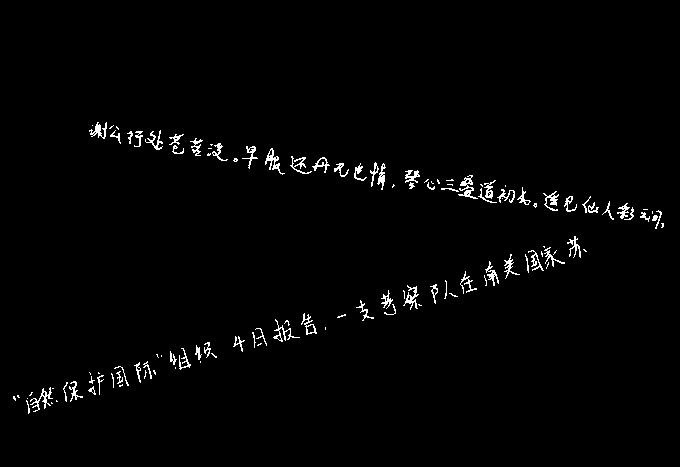 谢公行处苍苔没。早服还丹无世情，琴心三叠道初成。遥见仙人彩云间，
“自然保护国际”组织4月报告，一支考察队在南美国家苏